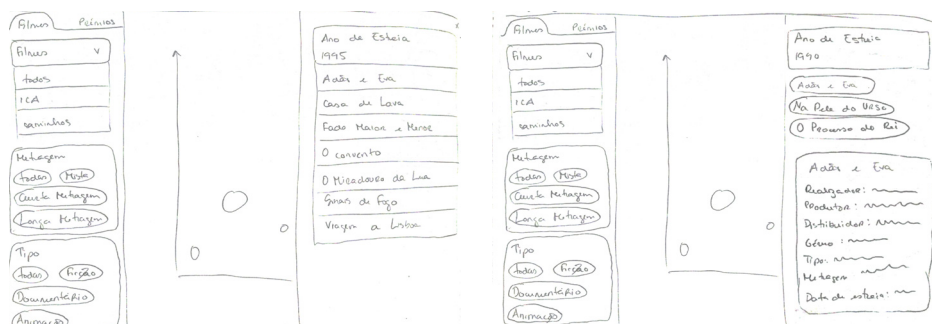 Filmes Prémios
Filmes v
todos
ICA
caminhos
Metragem
todas Mista
Curta Metragem
Longa Metragem
Tipo
todas Ficção
Documentário
Animação
Ano de Estreia
1995
Adão e Eva
Casa de Lava
Fado Maior e Menor
O convento
O Miradouro da Lua
Sinais de Fogo
Viagem a Lisboa
Filmes Prémios
Filmes v
todas
ICA
caminhos
Metragem
todas Mista
Curta Metragem
Longa Metragem
Tipo
todas Ficção
Documentário
Animação
Ano de Estreia
1990
Adão e Eva
Na Pele do Urso
O Processo do Rei
Adão e Eva
Realizador:
Produtor:
Distribuidor:
Género:
Tipo:
Metragem
Data de estreia: